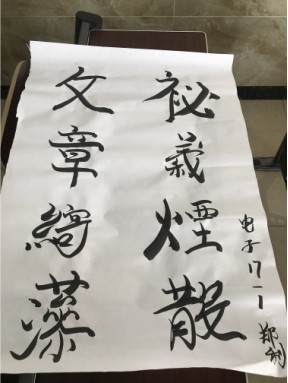 祕義煙散
文章綺藻
电子17-1
郑